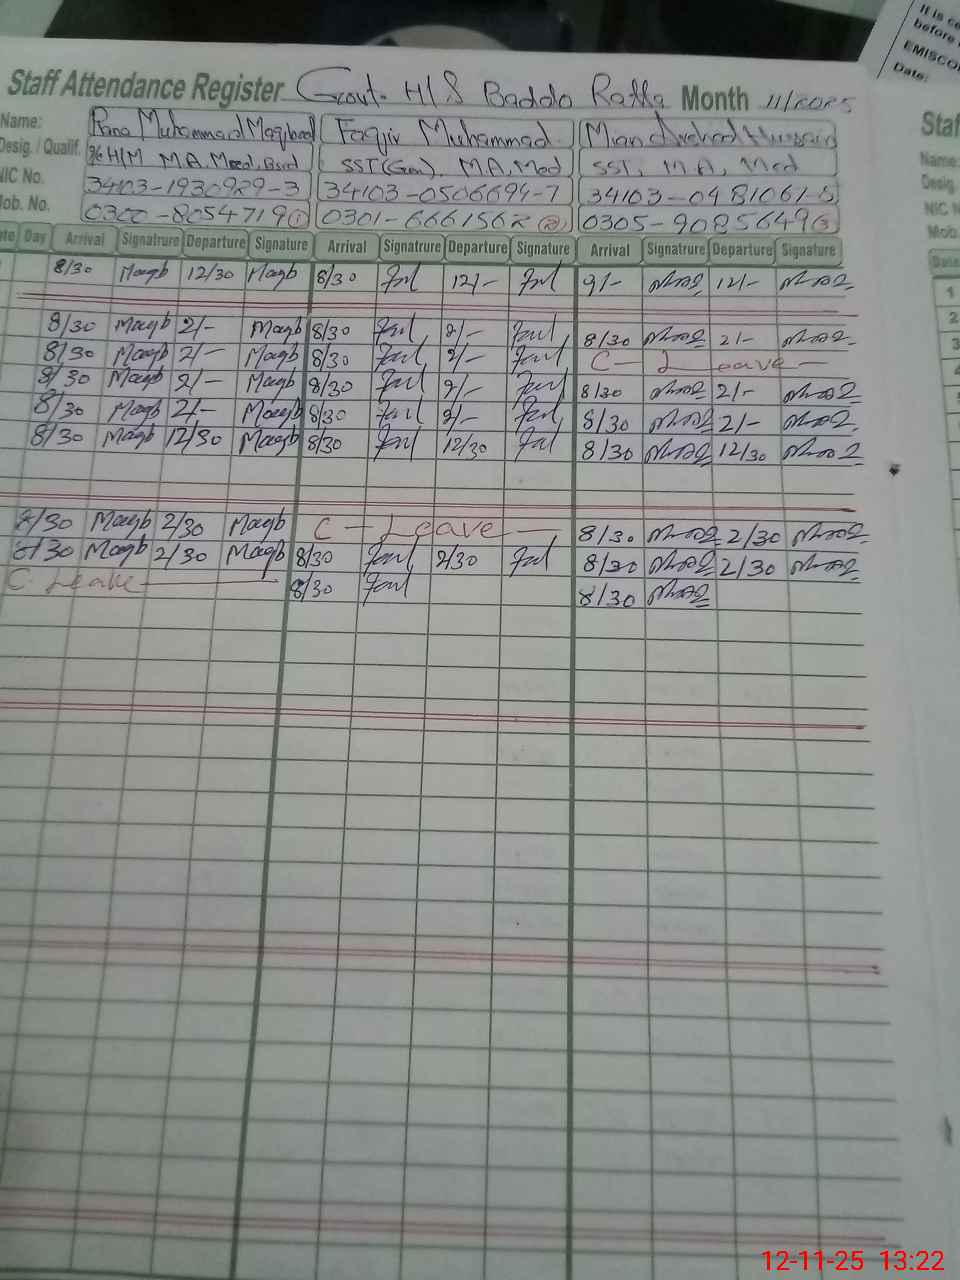 It is ce
before
EMISCO
Date:
Staff Attendance Register Govt. H/S Baddo Ratta Month 11/2025
Name: Rana Muhammad Maqbool Faqir Muhammad Mian Arshad Hussain
Desig. / Qualif. H/M M.A, M.ed, B.sed SST(Gen), M.A, Med SST, M.A, Med
NIC No. 34103-1930929-3 34103-0506694-7 34103-0481061-5
Mob. No. 0300-8054719 1 0301-6661562 2 0305-9085649 3
Day Arrival Signatrure Departure Signature Arrival Signatrure Departure Signature Arrival Signatrure Departure Signature
8/30 Maqb 12/30 Maqb 8/30 12/- 9/- 12/-
8/30 Maqb 2/- Maqb 8/30 2/- 8/30 2/-
8/30 Maqb 2/- Maqb 8/30 2/- C - Leave
8/30 Maqb 2/- Maqb 8/30 2/- 8/30 2/-
8/30 Maqb 2/- Maqb 8/30 2/- 8/30 2/-
8/30 Maqb 12/30 Maqb 8/30 12/30 8/30 12/30
8/30 Maqb 2/30 Maqb C - Leave 8/30 2/30
8/30 Maqb 2/30 Maqb 8/30 2/30 8/30 2/30
C Leave 8/30 8/30
Staf
Name:
Desig.
NIC N
Mob.
Date
1
2
3
12-11-25 13:22